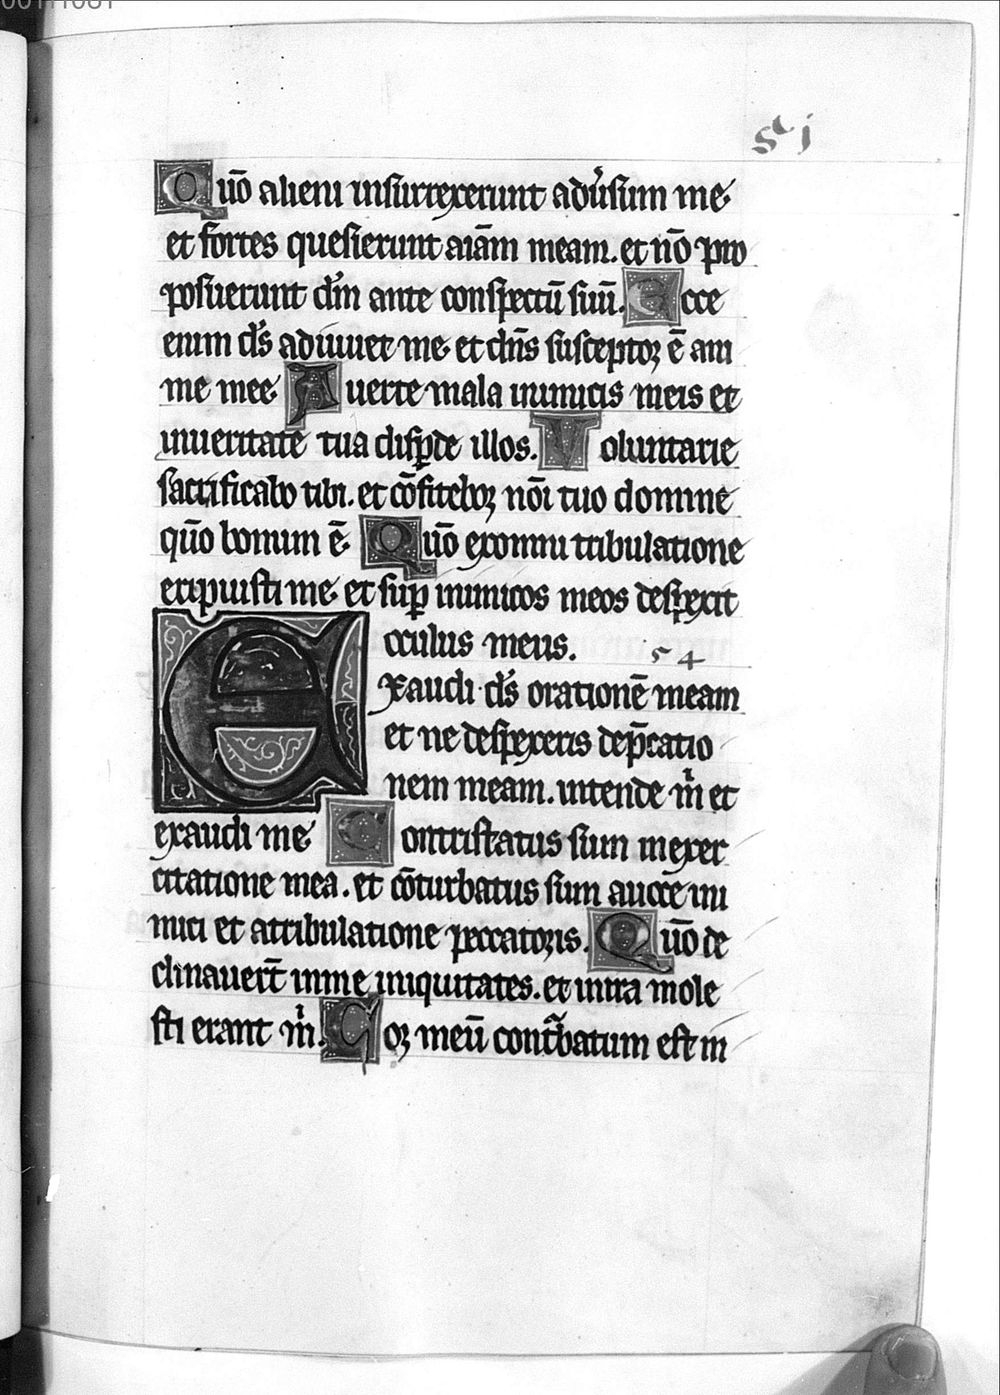 Quō alieni insurrexerunt aduˀsum me·
et fortes quesierunt aīam meam. et nō pro
posuerunt dm̄ ante conspectū suū. Ecce
enim ds̄ adiuuet me· et dn̄s susceptoꝝ ē ani
me mee· Auerte mala inimicis meis et
inueritate tua disꝑde illos. Voluntarie
sacrificabo tibi. et cōfiteboꝝ nōi tuo domine
qūo bonum ē· Quō exomni tribulatione
eripuisti me· et suꝑ inimicos meos despexit
oculus meus.
54
Exaudi ds̄ orationē meam
et ne despexeris dep̄catio
nem meam. intende m̄ et
exaudi me· Contristatus sum inexer
citatione mea. et cōturbatus sum auoce ini
mici et atribulatione peccatoris. Quō de
clinauert̄ inme iniquitates. et inira mole
sti erant m̄. Coꝝ meū contᵃbatum est in